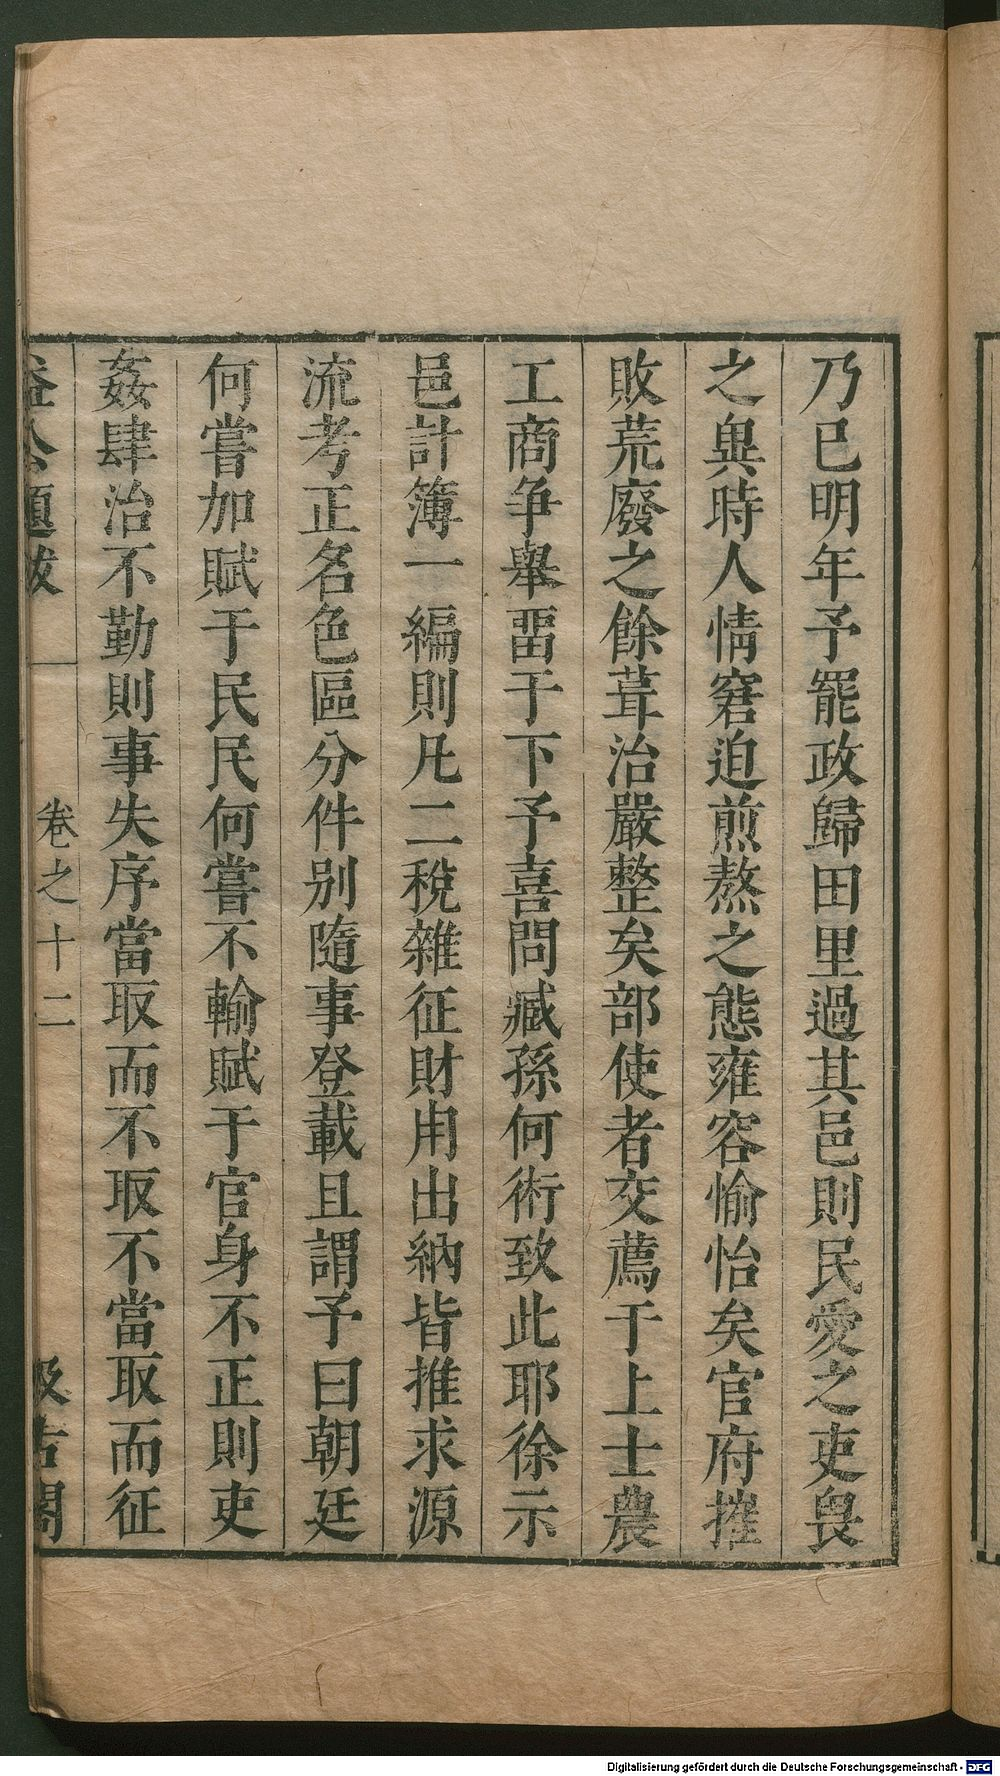 乃已明年予罷政歸田里過其邑則民愛之吏畏
之與時人情窘迫煎熬之態雍容愉怡矣官府摧
敗荒廢之餘葺治嚴整矣部使者交薦于上士農
工商爭舉畱于下予喜問臧孫何術致此耶徐示
邑計簿一編則凡二稅雜征財用出納皆推求源
流考正名色區分件别隨事登載且謂予曰朝廷
何嘗加賦于民民何嘗不輸賦于官身不正則吏
姦肆治不勤則事失序當取而不取不當取而征
益公題跋 卷之十二 汲古閣
Digitalisierung gefördert durch die Deutsche Forschungsgemeinschaft - DFG